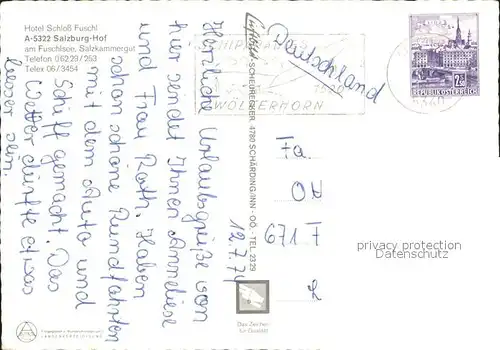 Hotel Schloß Fuschl
A-5322 Salzburg-Hof
am Fuschlsee, Salzkammergut
Telefon 06229/253
Telex 06/3454
Herzliche Urlaubsgrüße von
hier sendet Ihnen Anneliese
und Frau Roth. Haben
schon schöne Rundfahrten
mit dem Auto und
Schiff gemacht. Das
Wetter dürfte etwas
besser sein
12.7.74
SCHEURECKER, 4780 SCHÄRDING/INN - OÖ. - TEL. 2329
WÖLFERHORN
Deutschland
2S
REPUBLIK ÖSTERREICH
Fa
671 F
privacy protection
Datenschutz
Das Zeichen
für Qualität